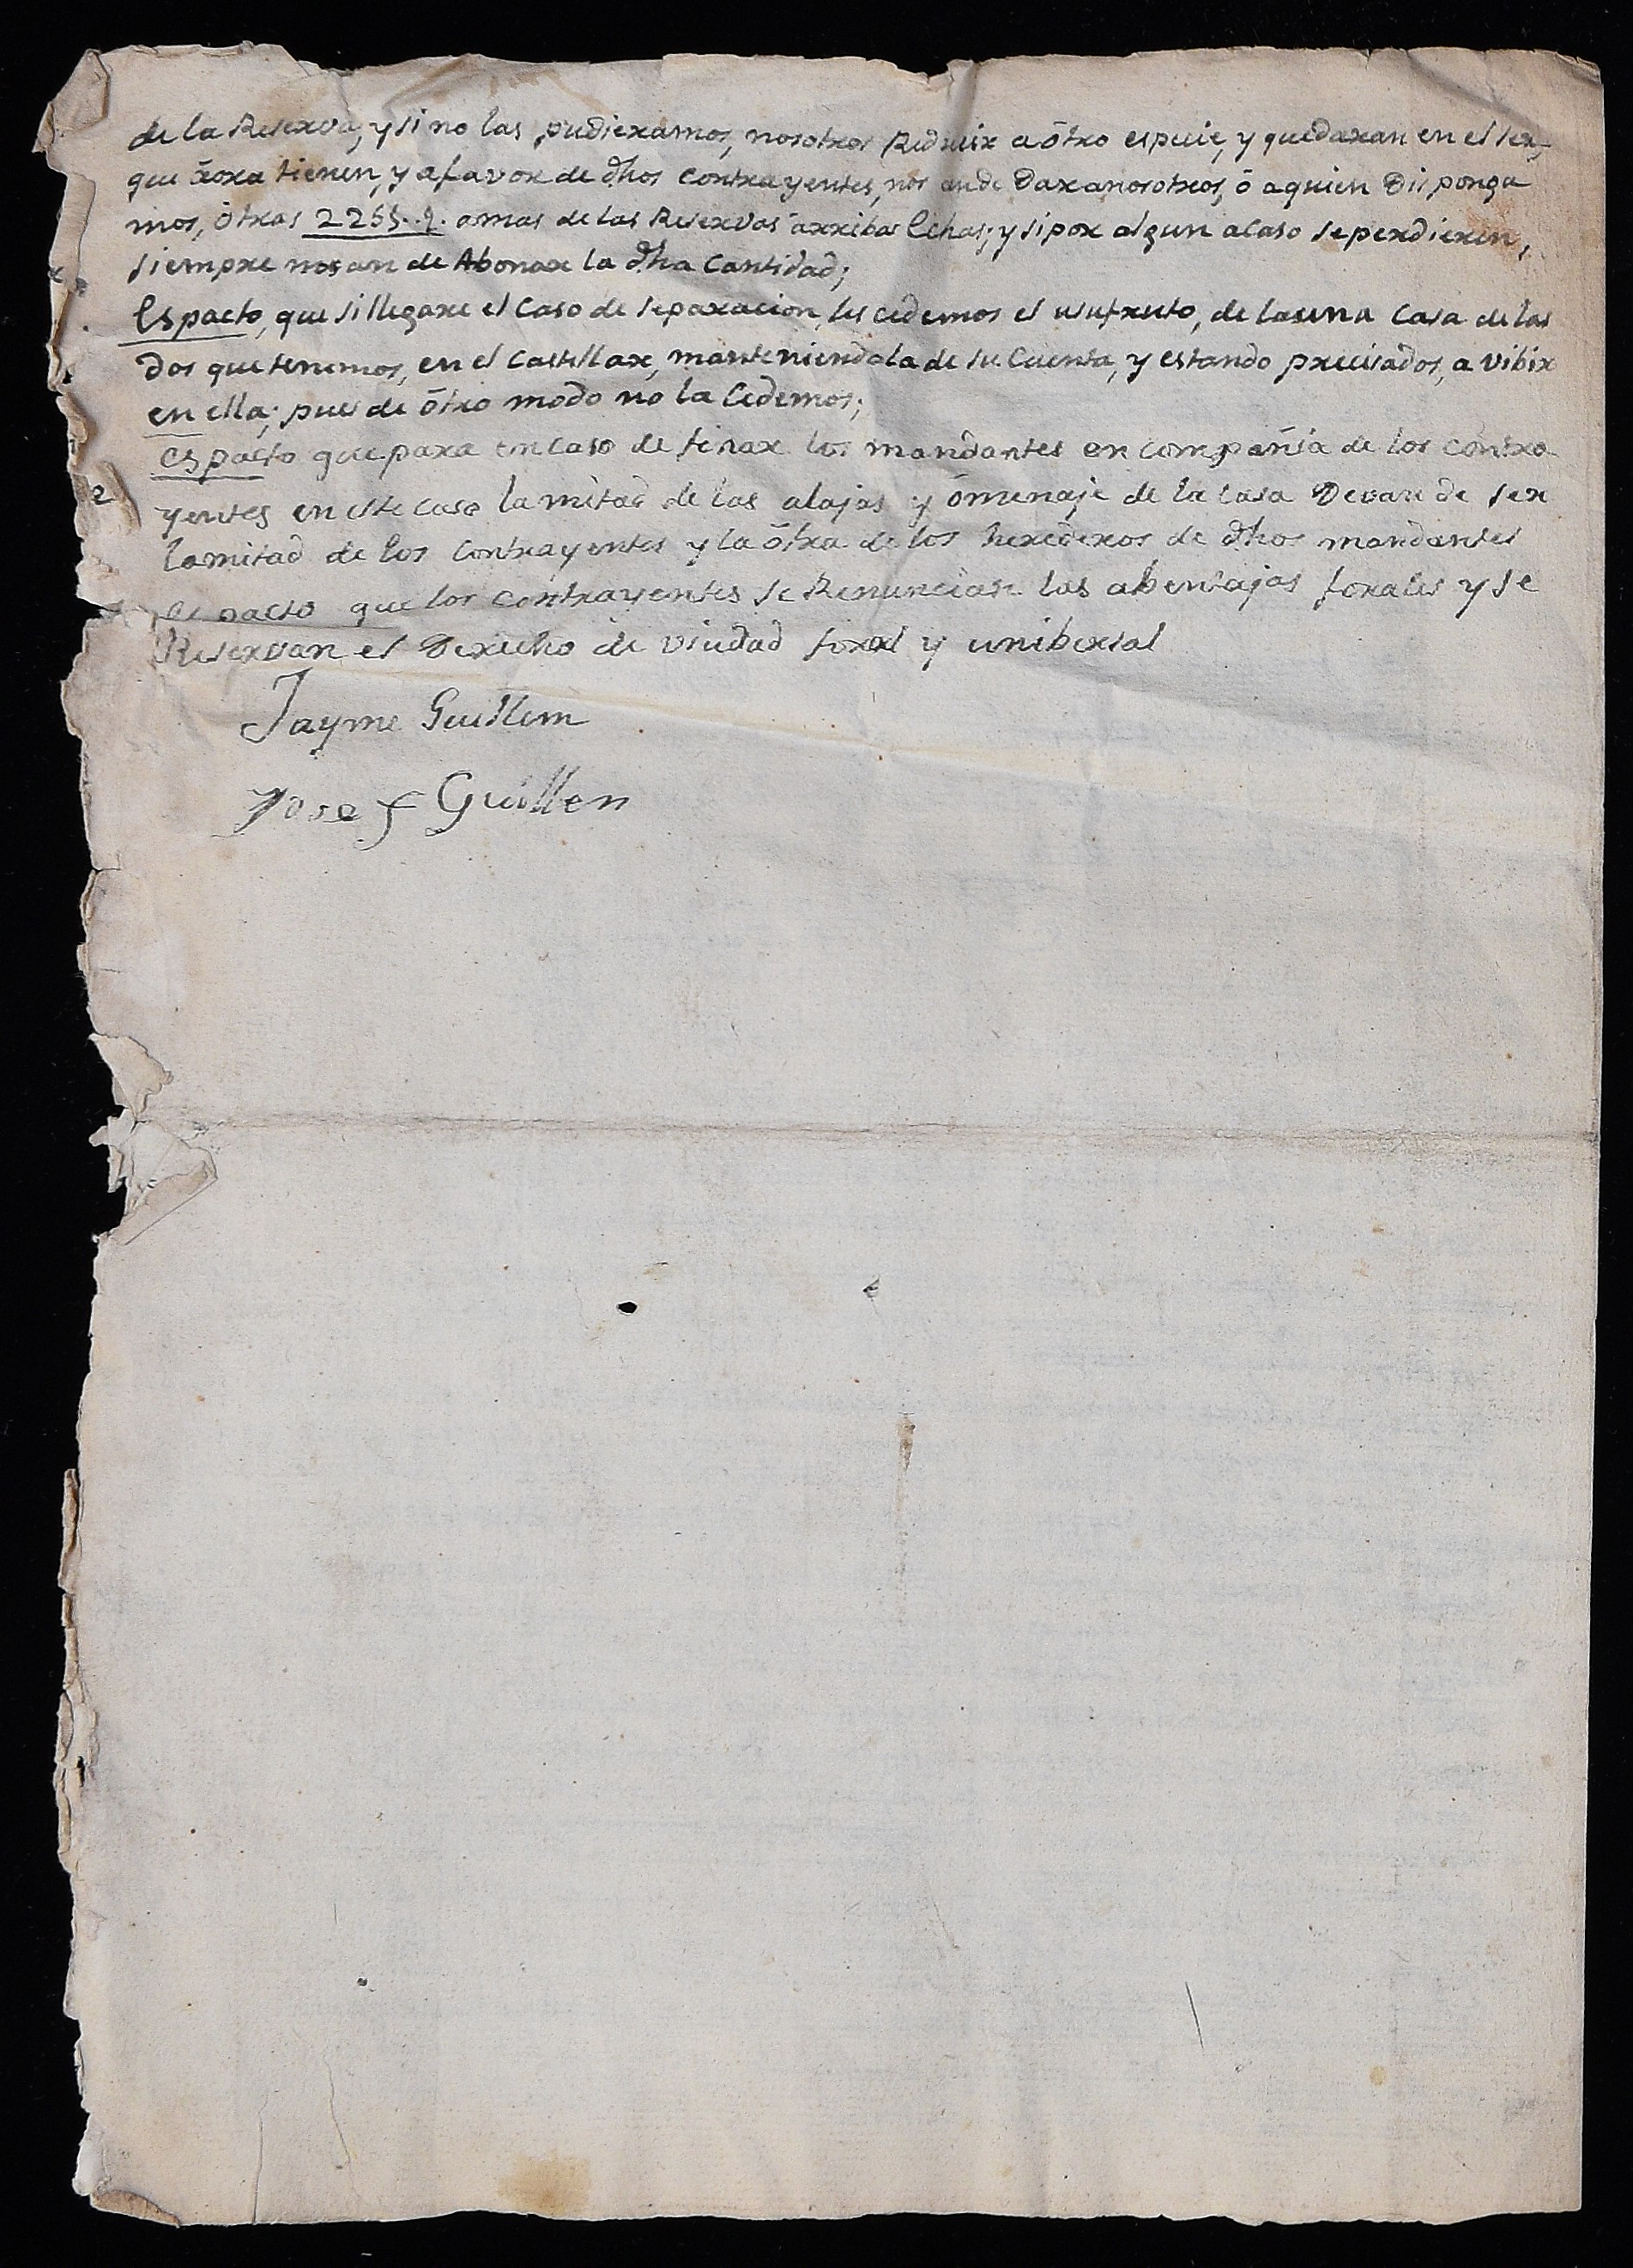 de la Reserva, y si no las pudieramos, nosotros Reduzir a ōtro especie, y quedaran en el ser,
que āora tienen, y afavor de dhos contrayentes, nos ande Dar anosotros, ō aquien Disponga
mos, ōtras amas de las Reservas arribas Echas; y si por algun acaso se perdieren,
siempre nos an de Abonar la dha Cantidad;
Es pacto, que si llegare el Caso de separacion, les cedemos el usufruto, de la una Casa de las
Dos que tenemos, en el Castellar, manteniendola de su Cuenta, y estando precisados, a vibir
en ella; pues de ōtro modo no la Cedemos;
es pacto que para en caso de finar los mandantes en compañia de los contra
yentes en este caso la mitad de las alajas y ōmenaje de la casa Devan de ser
la mitad de los contrayentes y la ōtra de los herederos de dhos mandantes
es pacto que los contrayentes se Renuncian las abentajas forales y se
Reservan el Derecho de viudad foral y unibersal
Jayme Guillem
Josef Guillen
2